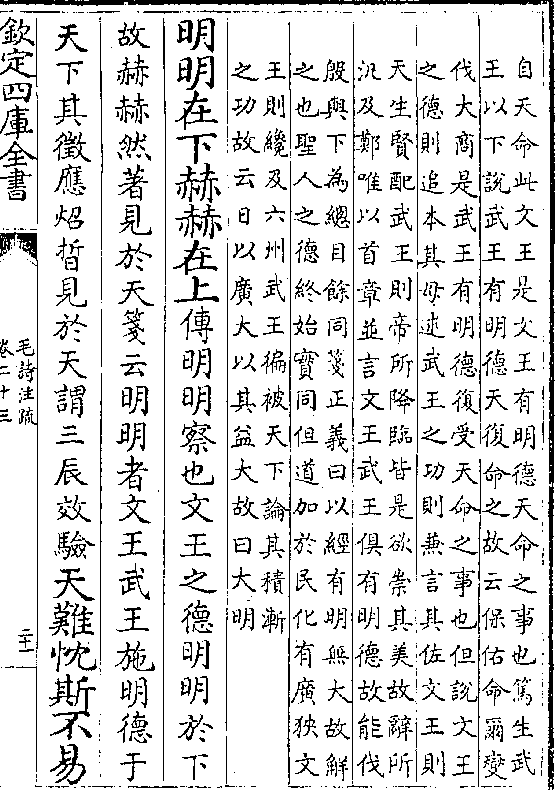 自天命此文王是文王有明德天命之事也篤生武
王以下說武王有明德天復命之故云保佑命爾變
伐大商是武王有明德復受天命之事也但說文王
之德則追本其母述武王之功則兼言其佐文王則
天生賢配武王則帝所降臨皆是欲崇其美故辭所
汎及鄭唯以首章並言文王武王俱有明德故能伐
殷與下為總目餘同箋正義曰以經有明無大故解
之也聖人之德終始寶同但道加於民化有廣狹文
王則纔及六州武王徧被天下論其積漸
之功故云日以廣大以其益大故曰大明
明明在下赫赫在上傳明明察也文王之德明明於下
故赫赫然著見於天箋云明明者文王武王施明德于
天下其徵應炤晢見於天謂三辰效驗天難忱斯不易
欽定四庫全書
毛詩注疏
卷二十三
二十